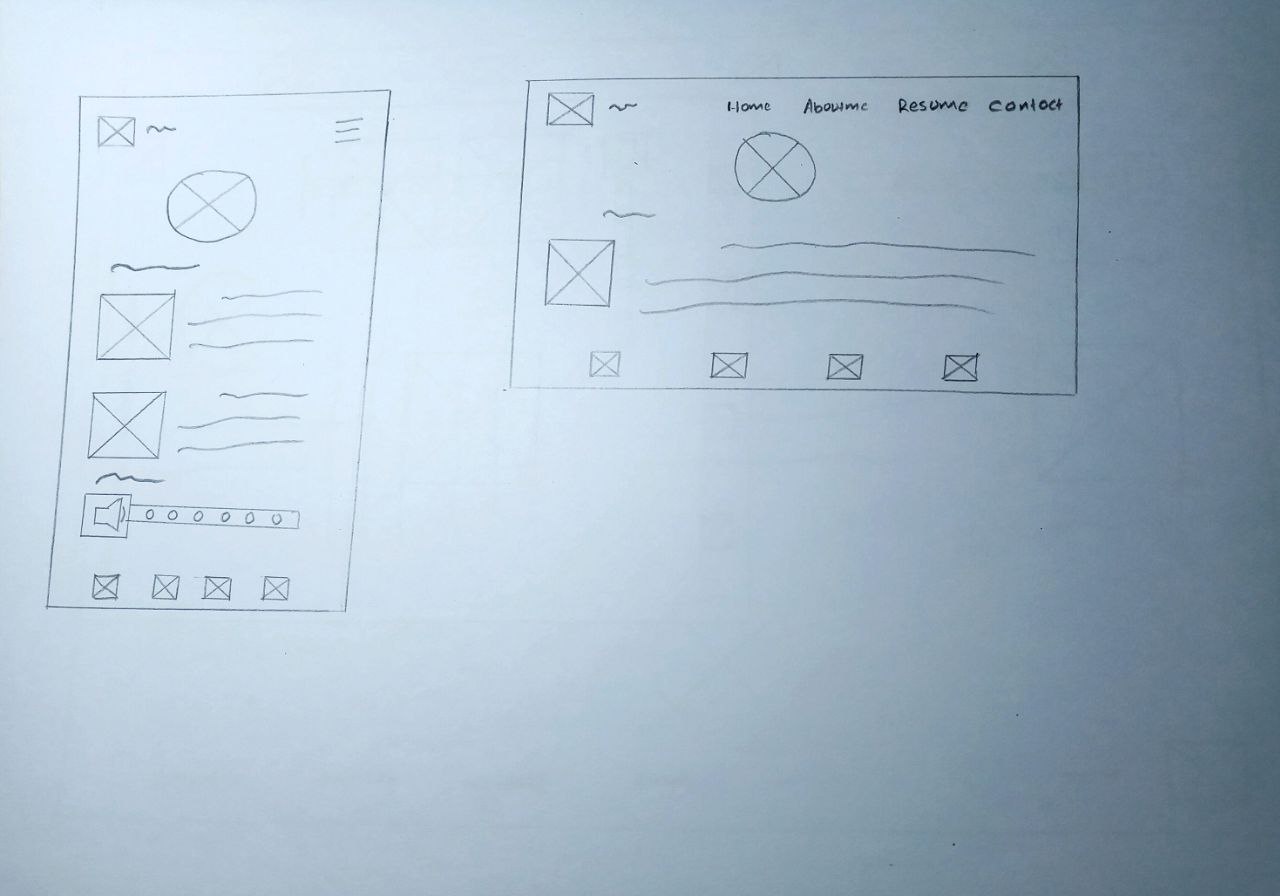 Home Aboutme Resume Contact